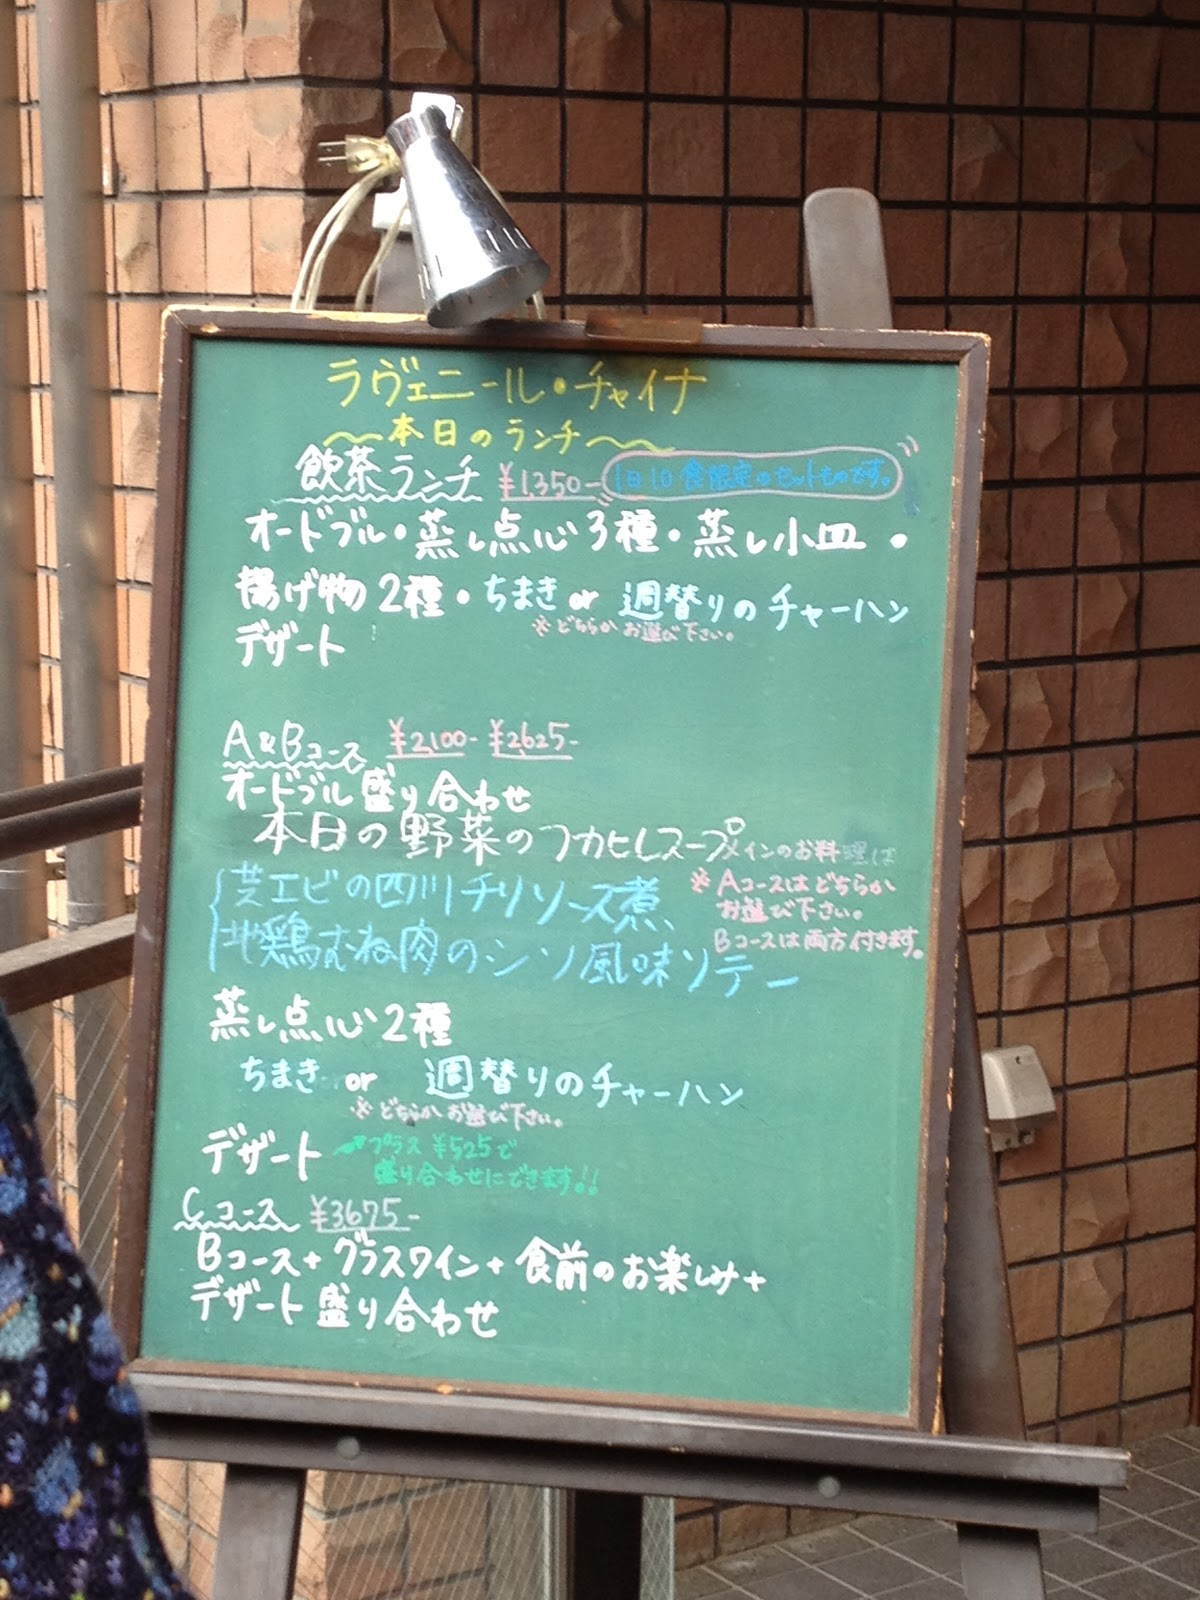 ラヴェニール・チャイナ
〜本日のランチ〜
飲茶ランチ ¥1,350- 1日10食限定のセットものです。
オードブル・蒸し点心3種・蒸し小皿・
揚げ物2種・ちまき or 週替りのチャーハン
※どちらかお選び下さい。
デザート
A&Bコース ¥2,100- ¥2,625-
オードブル盛り合わせ
本日の野菜のフカヒレスープ
メインのお料理は
※Aコースはどちらか
お選び下さい。
Bコースは両方付きます。
芝エビの四川チリソース煮
地鶏むね肉のシソ風味ソテー
蒸し点心2種
ちまき or 週替りのチャーハン
※どちらかお選び下さい。
デザート
プラス¥525で
盛り合わせにできます!!
Cコース ¥3,675-
Bコース+グラスワイン+食前のお楽しみ+
デザート盛り合わせ